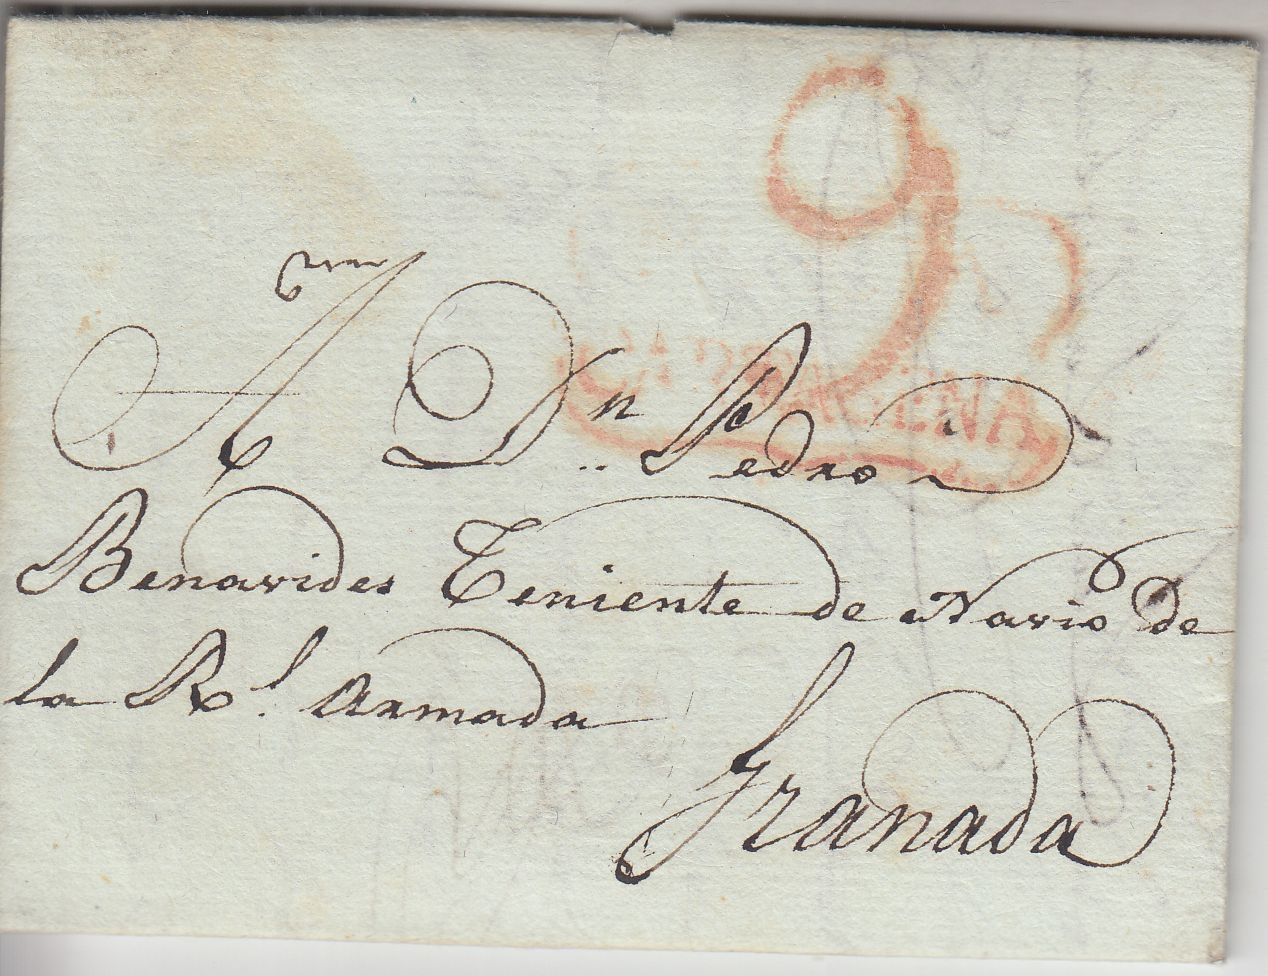 9
CARTAGENA
A Dn. Pedro
Benavides Teniente de Navio de
la Rl. Armada
Granada